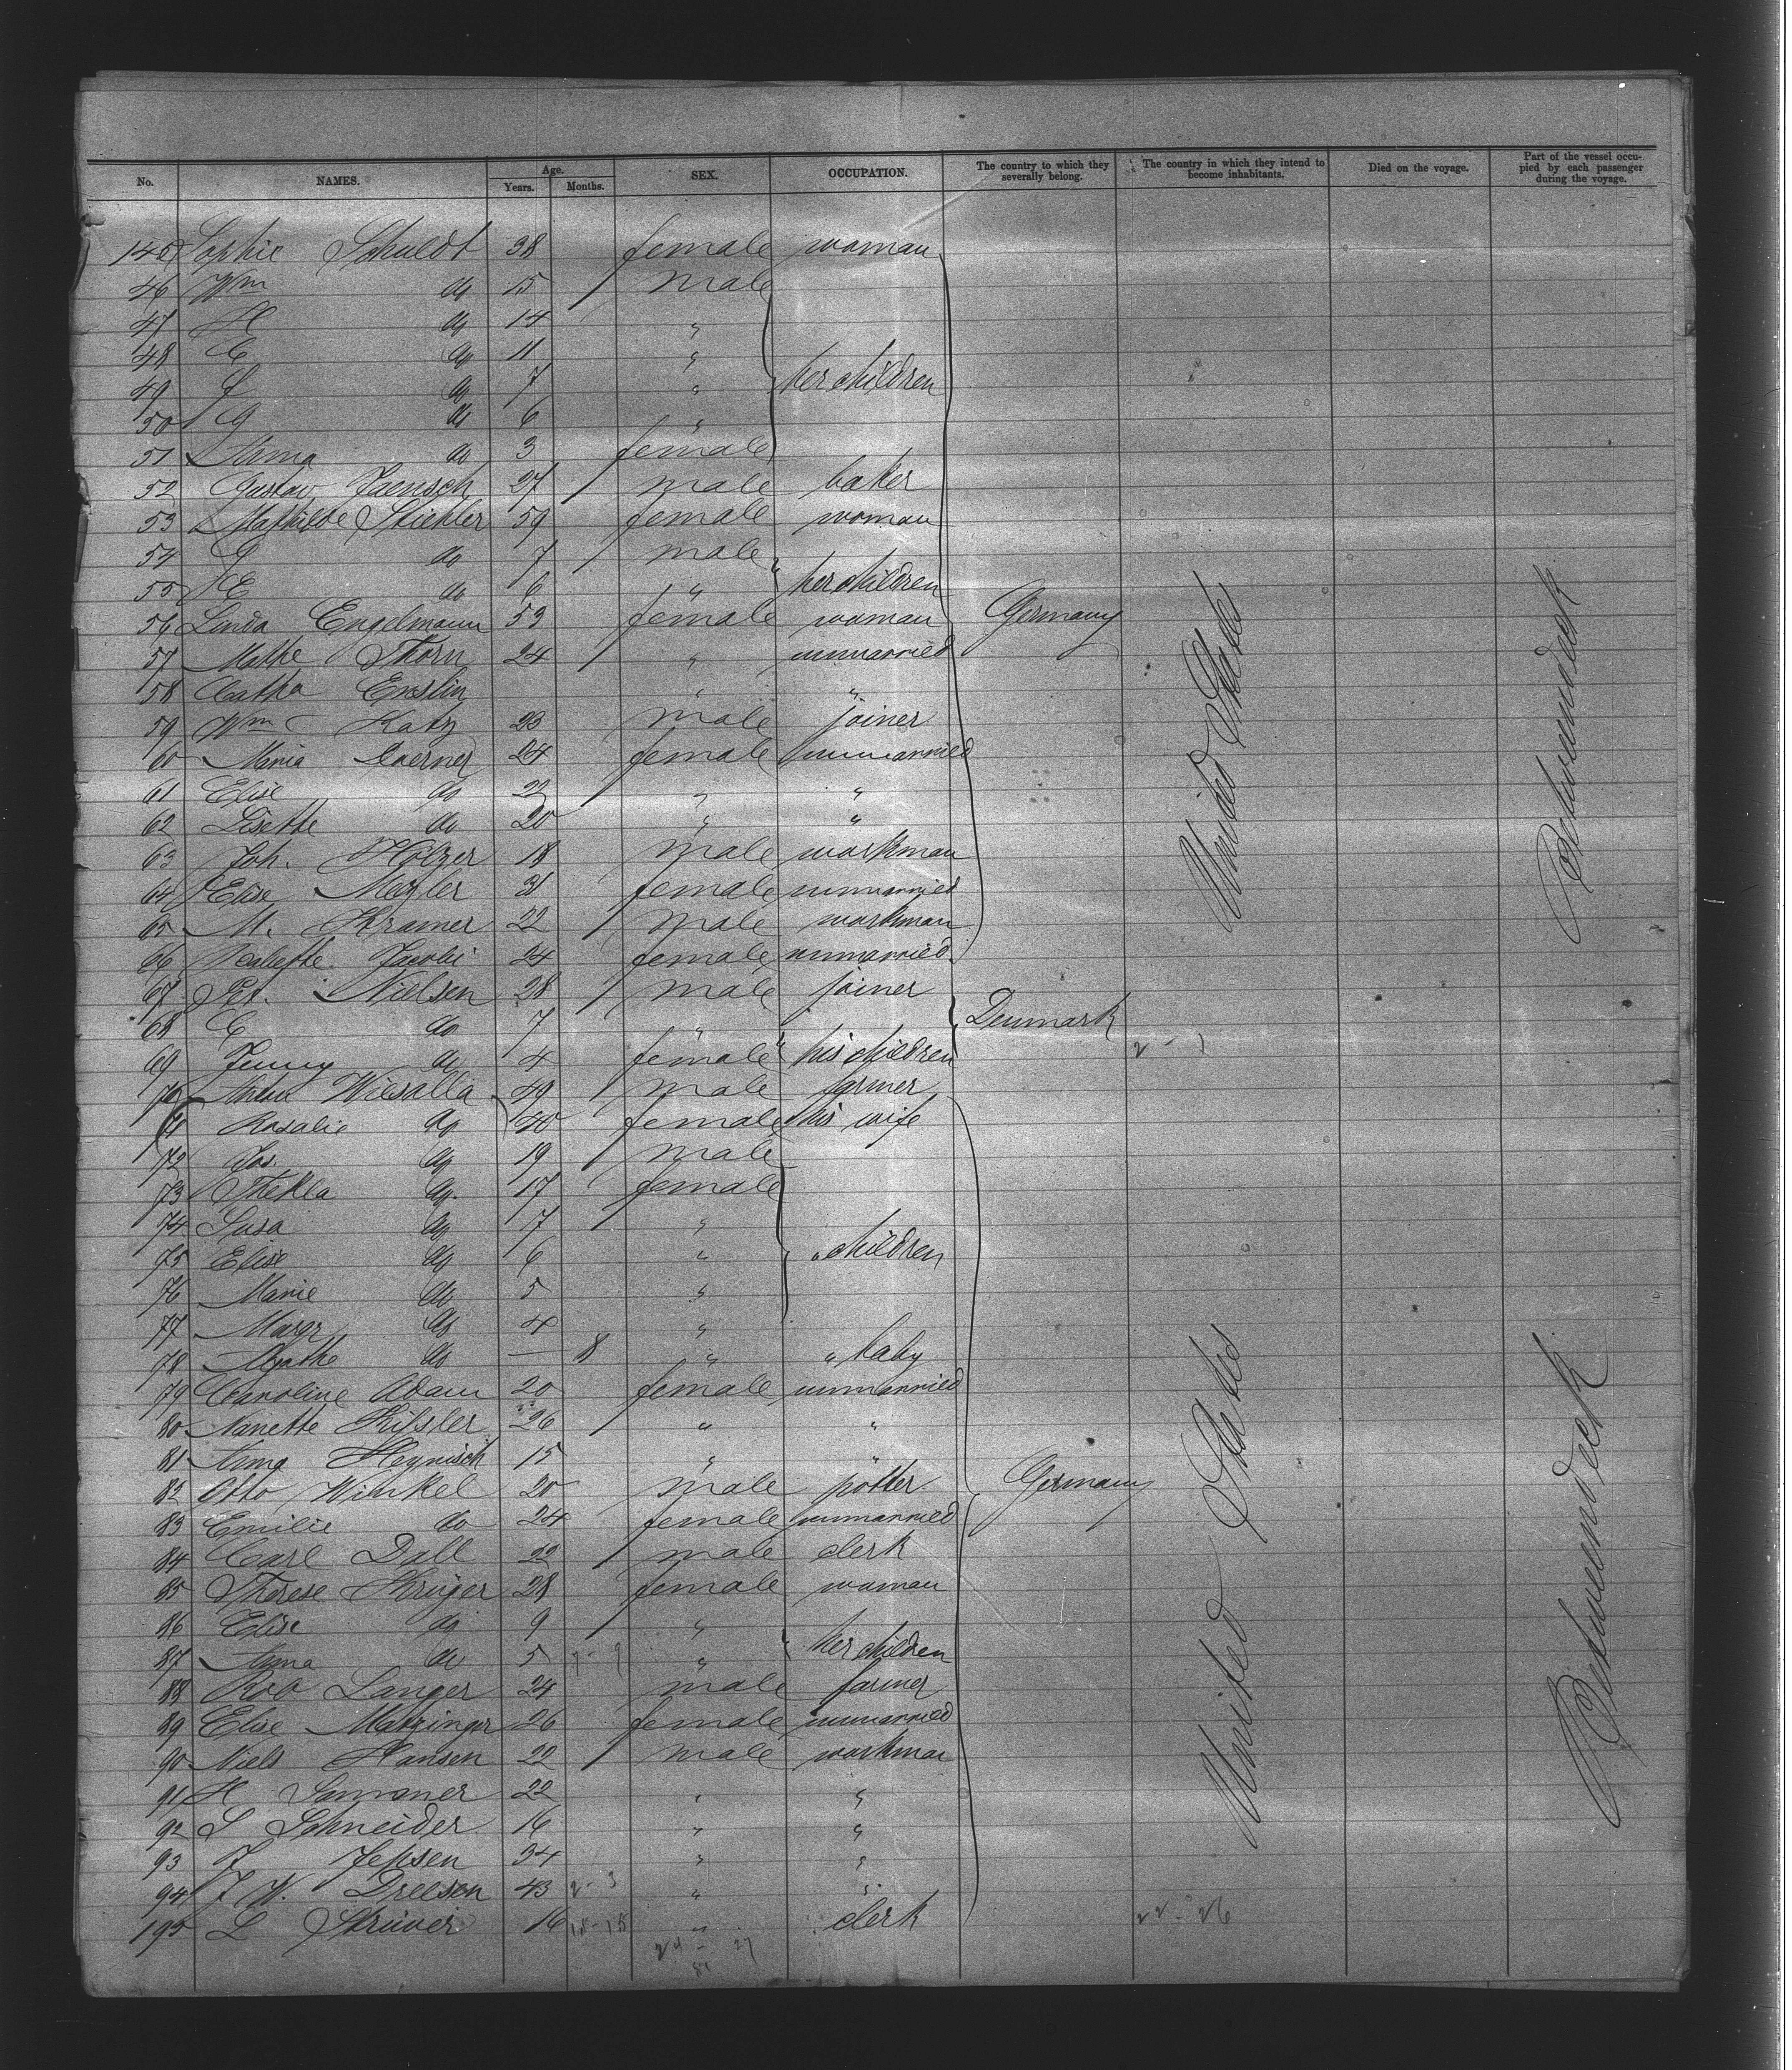 No. NAMES. Age. Years. Months. SEX. OCCUPATION. The country to which they severally belong. The country in which they intend to become inhabitants. Died on the voyage. Part of the vessel occupied by each passenger during the voyage.
145 Sophie Schuldt 38 female woman
46 Wm do 15 male
47 H do 14 "
48 C do 11 "
49 do 7 " her children
50 G do 6 "
51 Anna do 3 female
52 Gustav Jaensch 27 male baker
53 Mathilde Stiehler 59 female woman
54 G do 7 male
55 E do 6 " her children
56 Linda Engelmann 53 female woman Germany
57 Mathe Thorn 24 " unmarried
58 Catha Ensslin " "
59 Wm Katz 23 male joiner
60 Maria Doerner 24 female unmarried
61 Elise do 22 " "
62 Lisette do 20 " " United States Betweendeck
63 Joh. Holzer 18 male workman
64 Elise Mezler 31 female unmarried
65 M. Kramer 22 male workman
66 Jacobi 24 female unmarried
67 Pet. Nielsen 28 male joiner
68 C do 7 " Denmark
69 Jenny do 4 female his children
70 Wiesalla 49 male farmer
71 Rosalie do 40 female his wife
72 Jos. do 19 male
73 Thekla do 17 female
74 Susa do 7 "
75 Elise do 6 " " children
76 Marie do 5 "
77 Margr do 4 "
78 Agathe do — 8 " " baby
79 Caroline Adam 20 female unmarried
80 Nanette Kissler 26 " "
81 Anna Heynisch 15 " "
82 Otto Winkel 20 male potter Germany
83 Emilie do 24 female unmarried
84 Carl Dall 22 male clerk
85 Therese Krüger 28 female woman United States Betweendeck
86 Elise do 9 "
87 Anna do 5 " her children
88 Rob Langer 24 male farmer
89 Elise Matzinger 26 female unmarried
90 Niels Hansen 22 male workman
91 H 22 " "
92 S Schneider 16 " "
93 J Jepsen 34 " "
94 J W. Dreesen 43 2-3 " "
195 L Strüver 16 15-15 " clerk 22-26
24 - 27